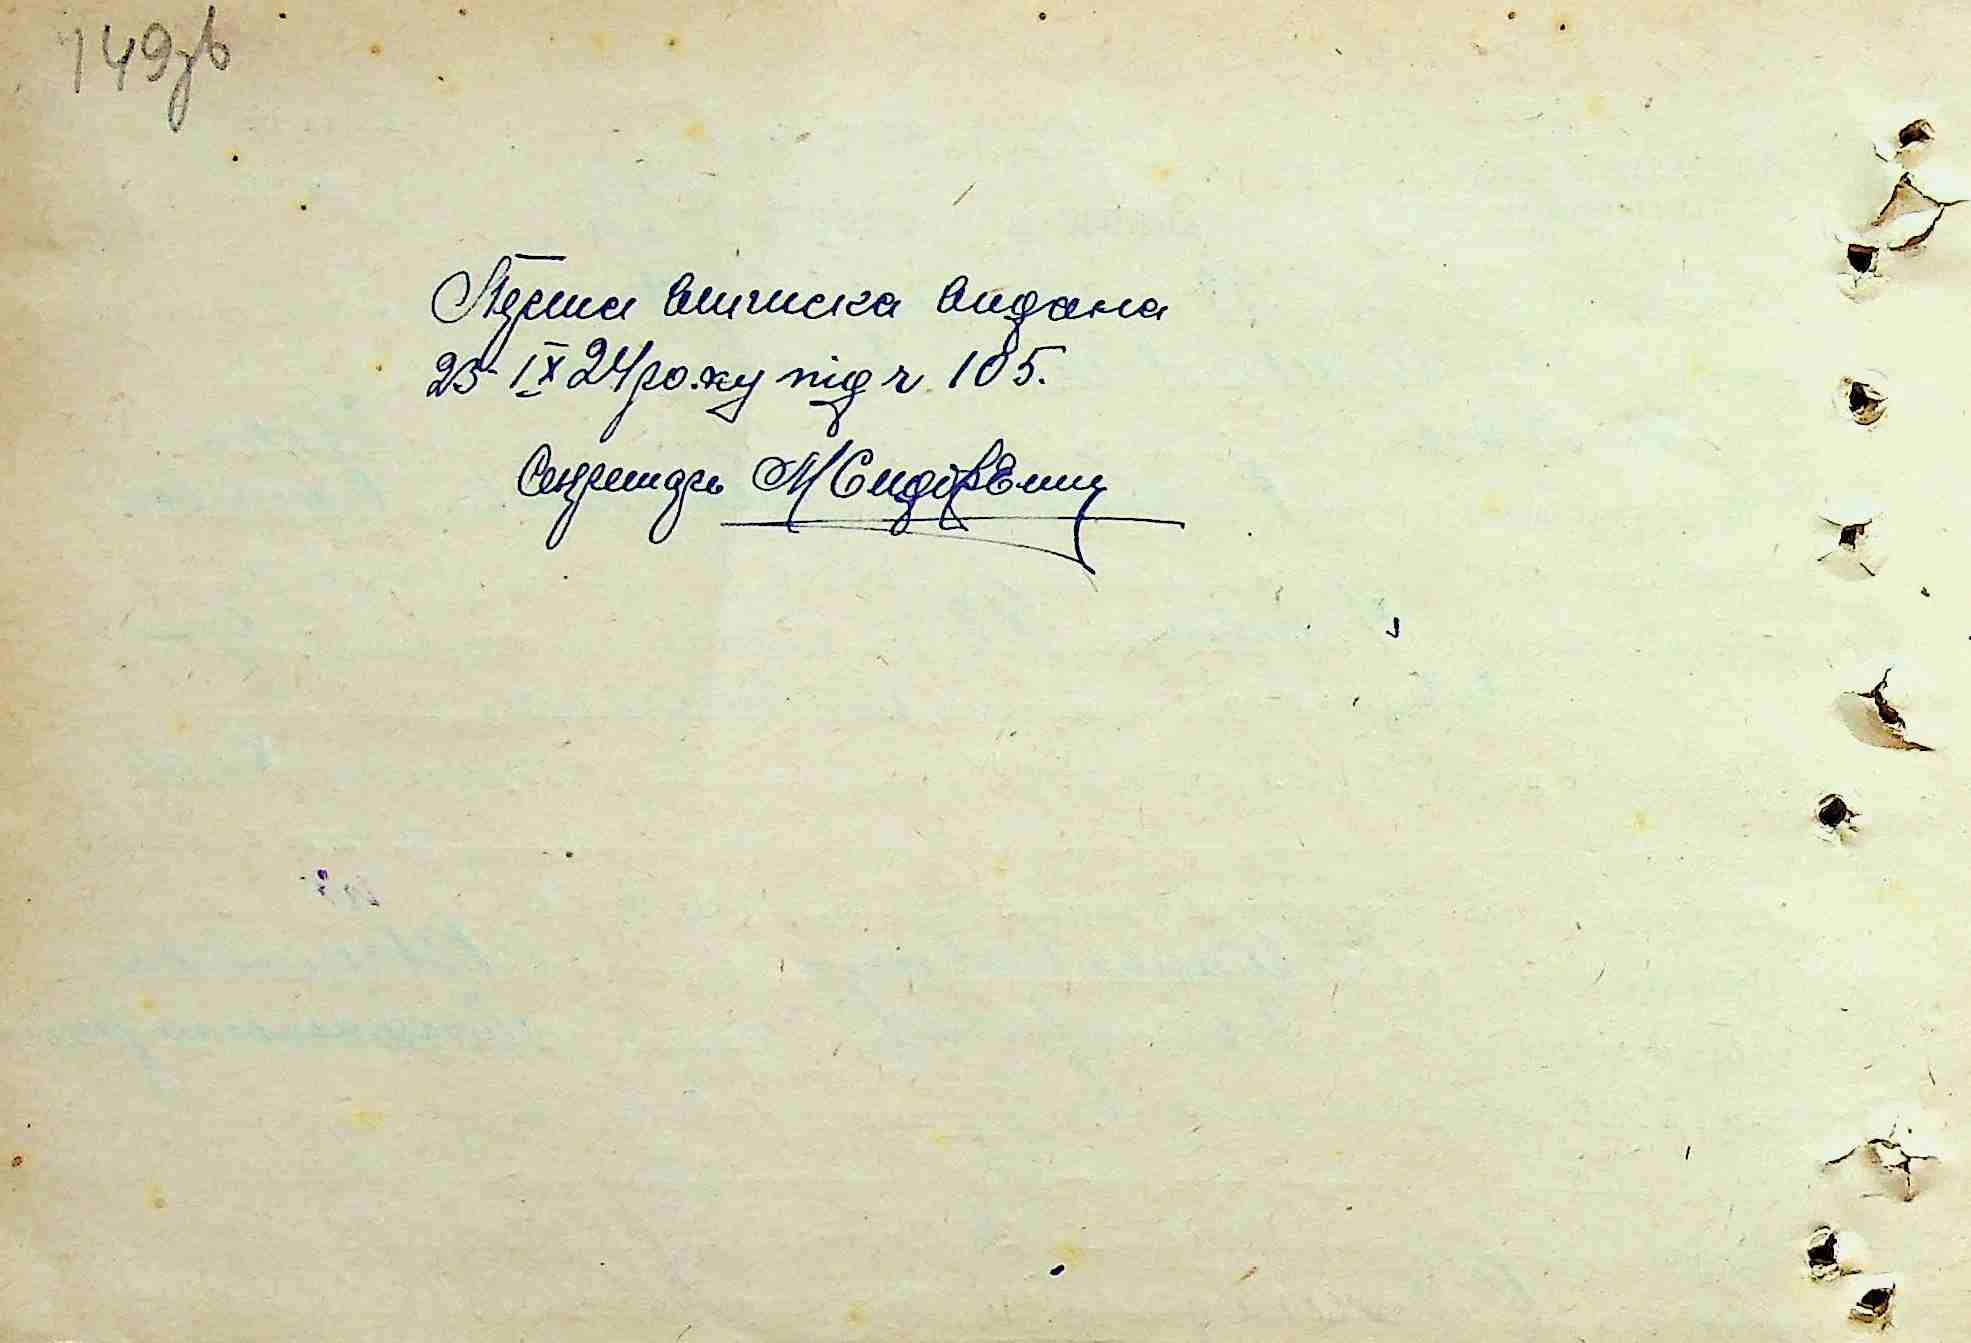 149зв
Перша виписка видана
25 IX 24 року під ч 105.
Секретарь